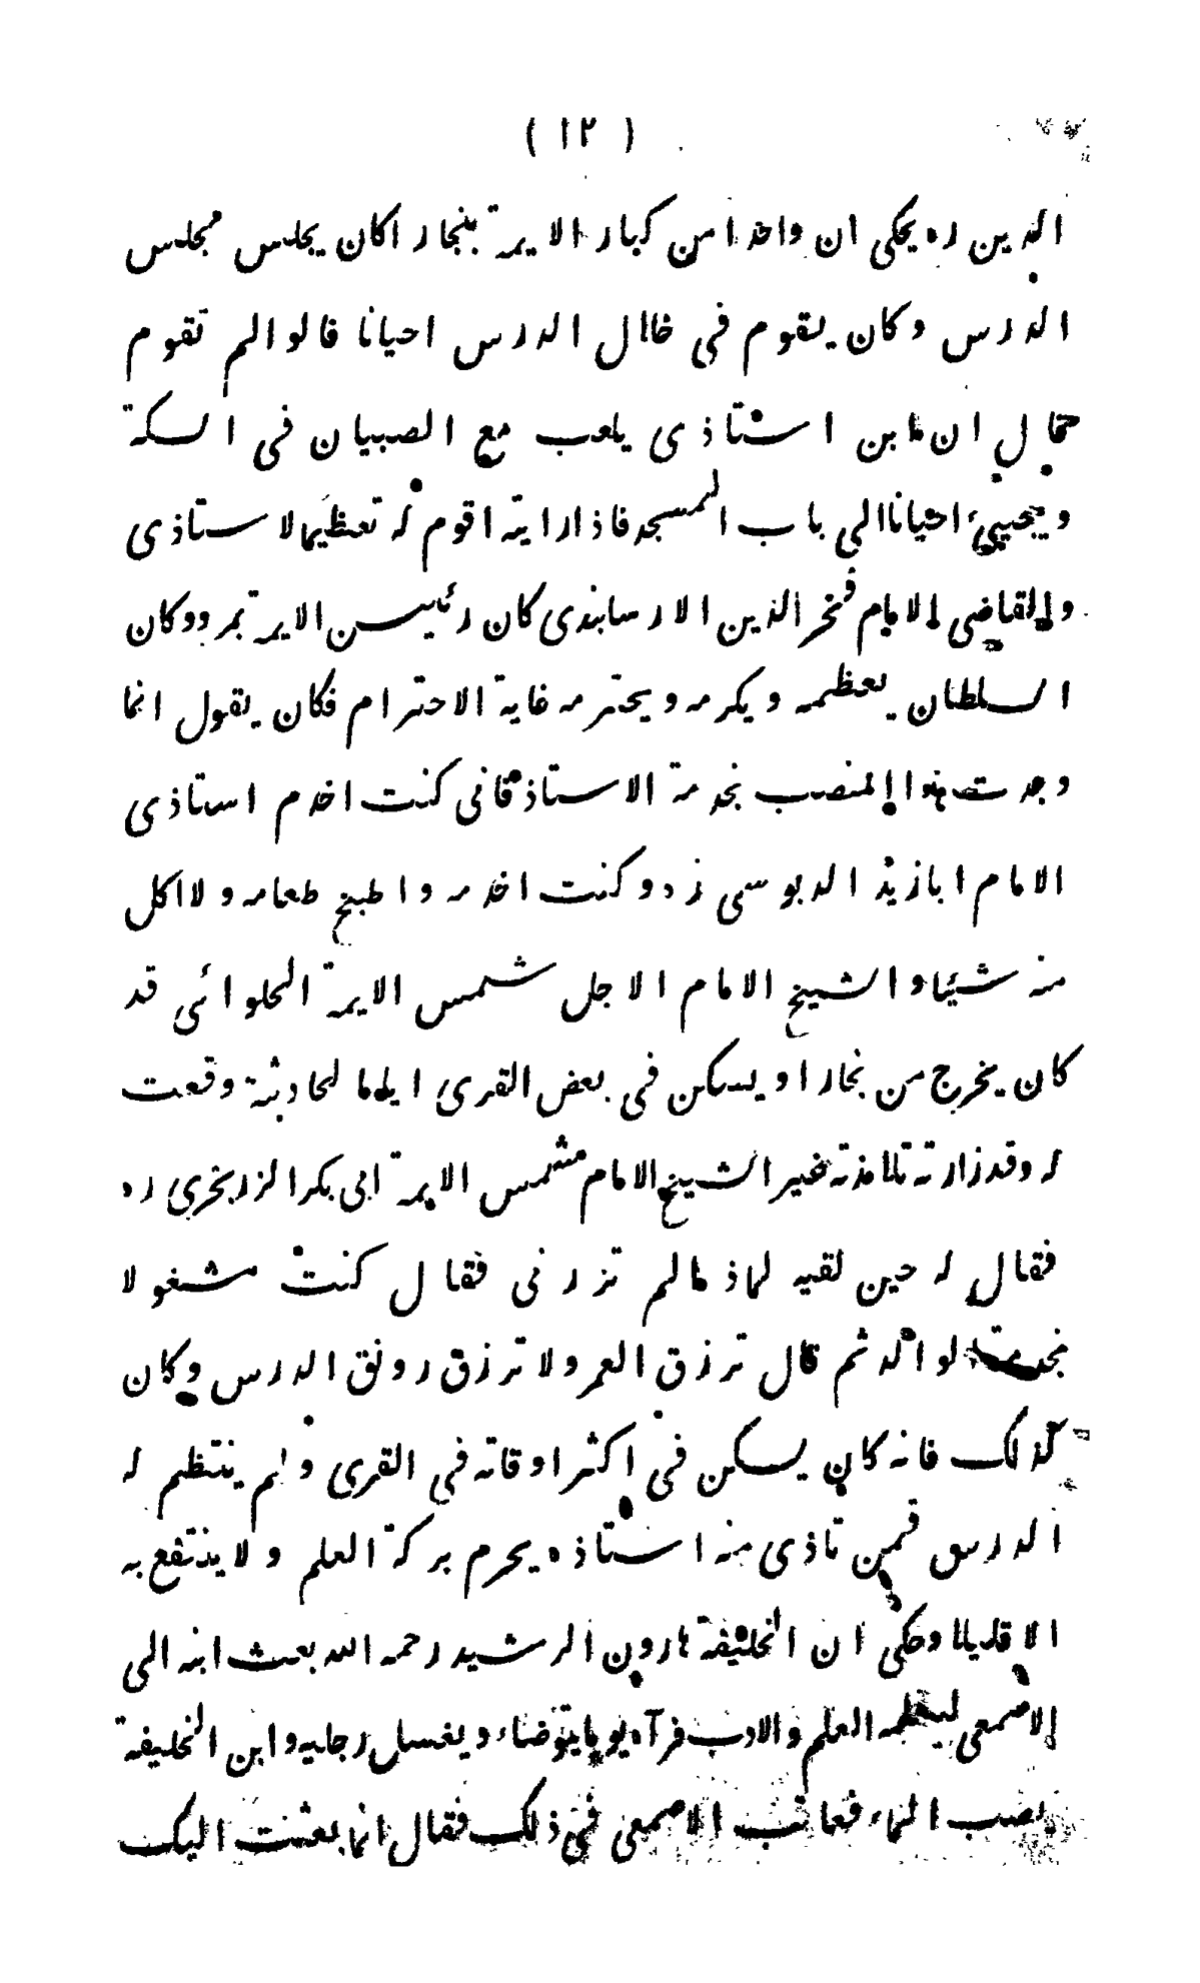 ( ١٢ )
الدين ره يحكى ان واحدا من كبار الايمة ببخارا كان يجلس مجلس
الدرس وكان يقوم فى خلال الدرس احيانا قالوا لم تقوم
فقال ان ابن استاذى يلعب مع الصبيان فى السكة
ويجيئ احيانا الى باب المسجد فاذا رايته اقوم له تعظيما لاستاذى
والقاضى الامام فخر الدين الارسابندى كان رئيس الايمة بمرو وكان
السلطان يعظمه ويكرمه ويحترمه غاية الاحترام فكان يقول انما
وجدت هذا المنصب بخدمة الاستاذ فانى كنت اخدم استاذى
الامام ابا زيد الدبوسى زد وكنت اخدمه واطبخ طعامه ولا اكل
منه شيئا والشيخ الامام الاجل شمس الايمة الحلوائى قد
كان يخرج من بخارا ويسكن فى بعض القرى اياما لحادثة وقعت
له وقد زارته تلامذته غير الشيخ الامام شمس الايمة ابى بكر الزربخرى ره
فقال له حين لقيه لماذا لم تزرنى فقال كنت مشغولا
بخدمة الوالدة ثم قال ترزق العمر ولا ترزق رونق الدرس وكان
كذلك فانه كان يسكن فى اكثر اوقاته فى القرى ولم ينتظم له
الدرس فمن تاذى منه استاذه يحرم بركة العلم ولا ينتفع به
الا قليلا وحكى ان الخليفة هارون الرشيد رحمه الله بعث ابنه الى
الاصمعى ليعلمه العلم والادب فرآه يوما يتوضاء ويغسل رجليه وابن الخليفة
يصب الماء فعاتب الاصمعى فى ذلك فقال انما بعثت اليك